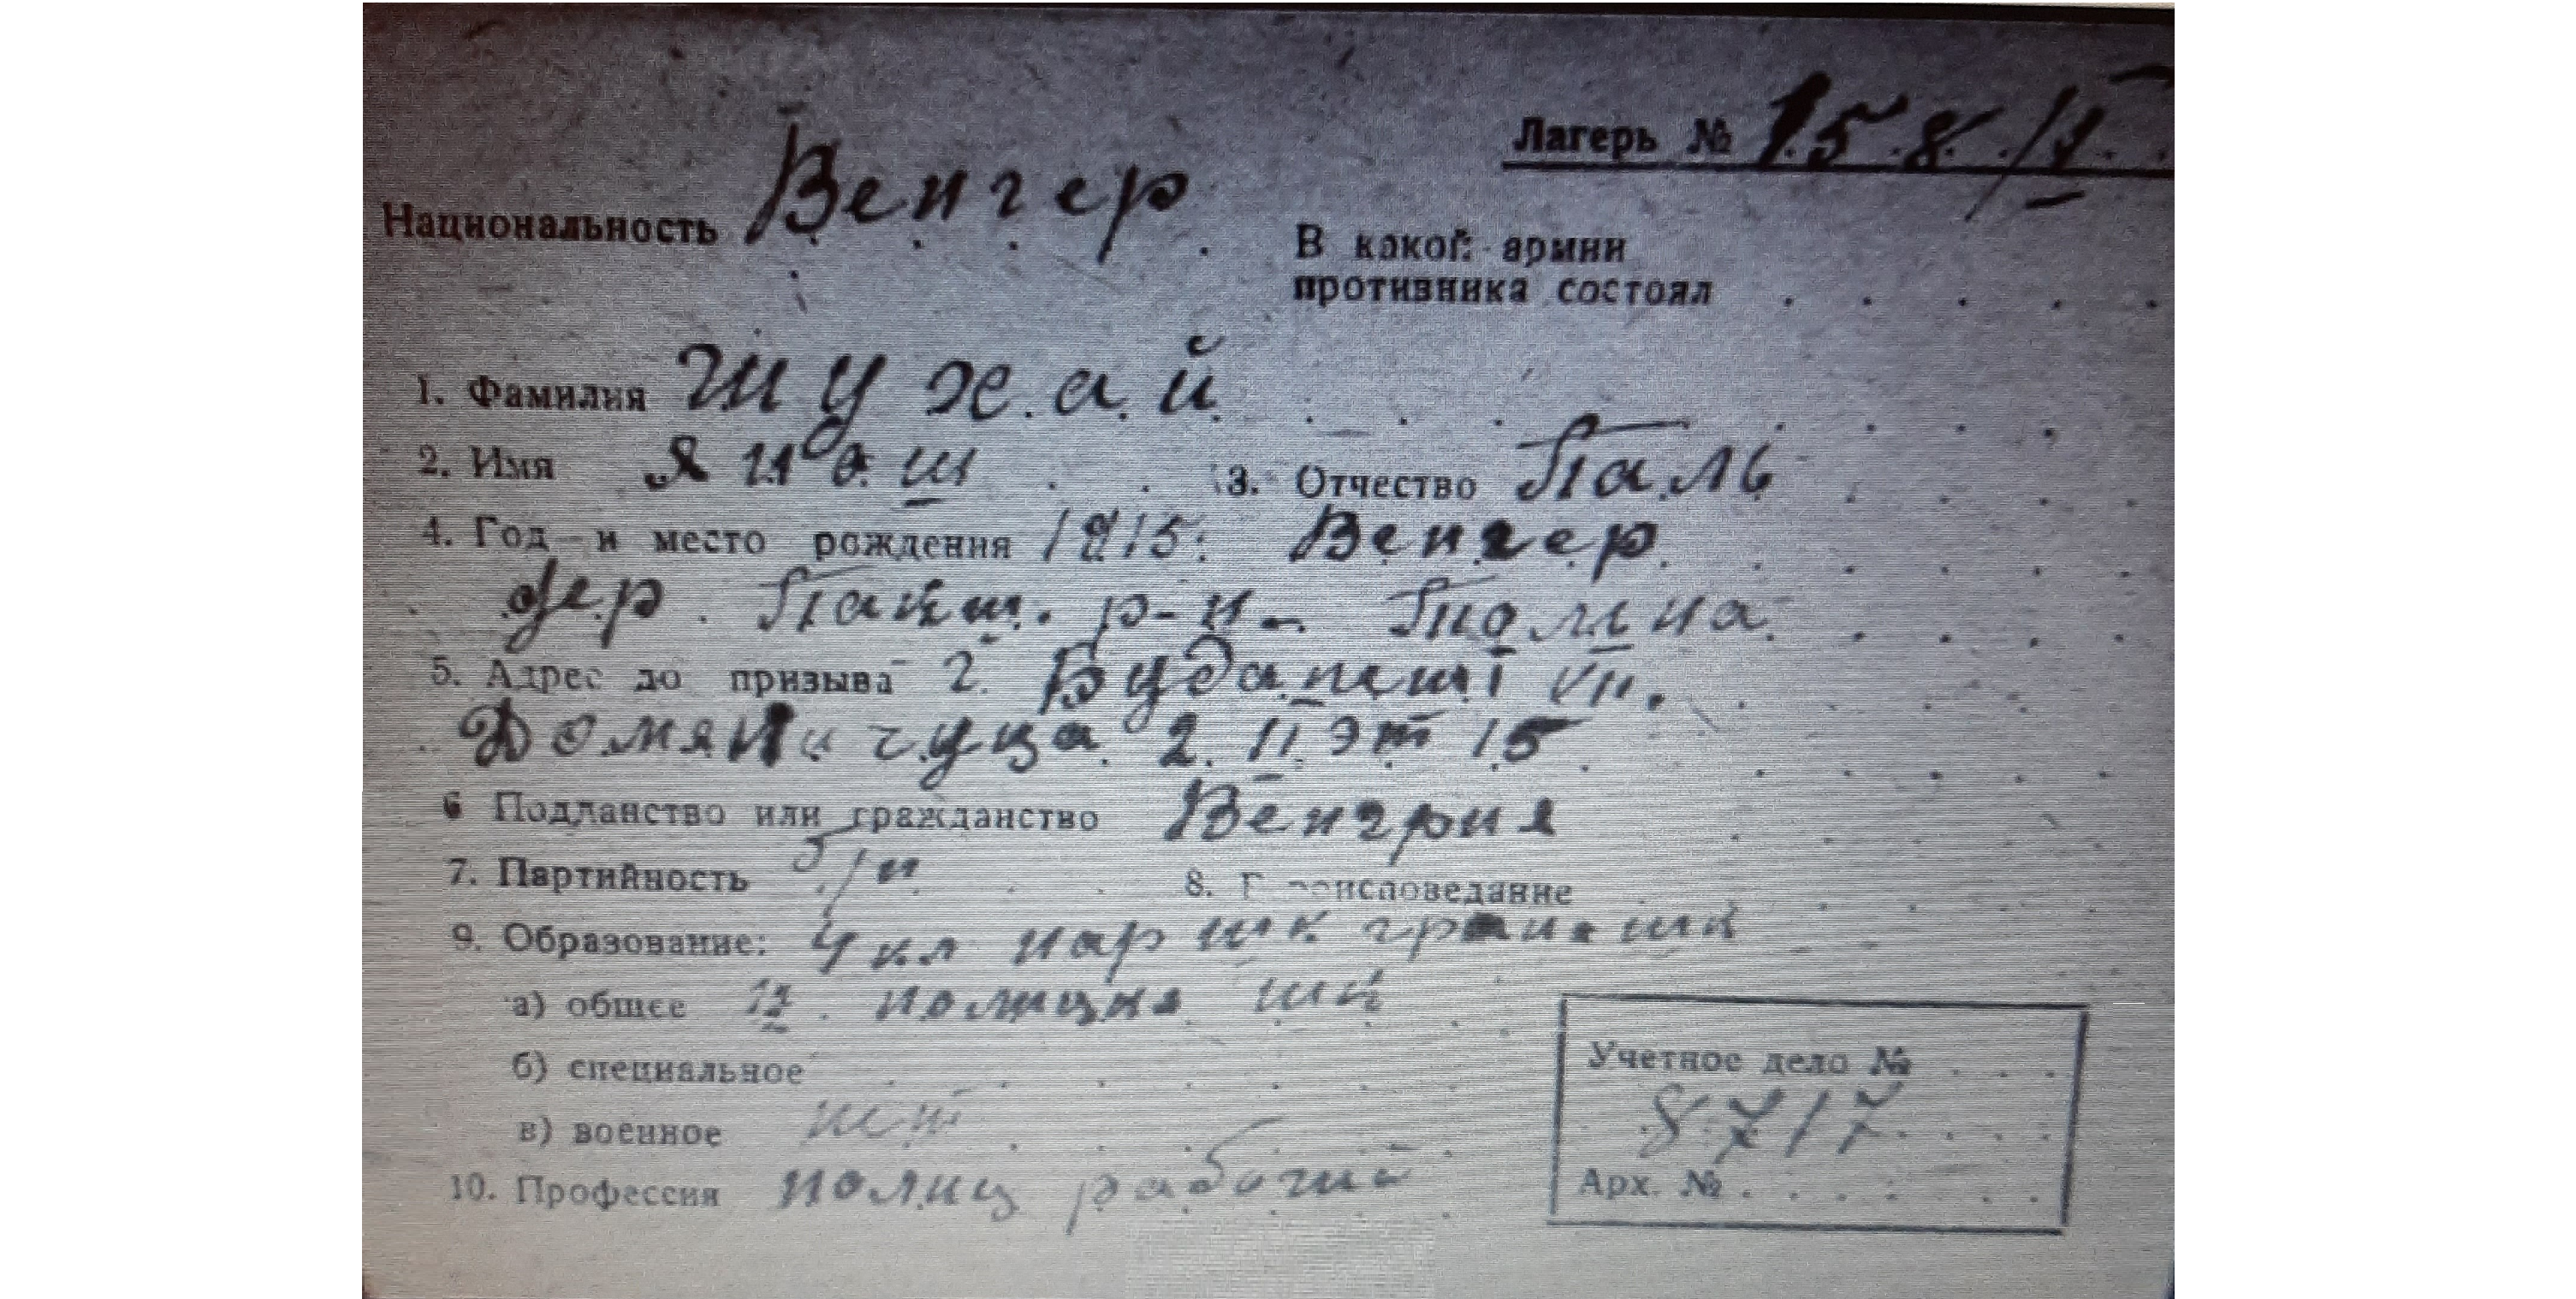 Лагерь № 158/II
Национальность Венгер
В какой армии
противника состоял
1. Фамилия Шухай
2. Имя Янош 3. Отчество Паль
4. Год и место рождения 1915. Венгер
дер. Пакш. р-н. Толна
5. Адрес до призыва г. Будапешт VII.
Домяничуца 2. II эт 15
6 Подданство или гражданство Венгрия
7. Партийность б/п 8. исповедание
9. Образование: 4 кл нар шк 4 шк
а) общее полиция шк
б) специальное
в) военное нет
10. Профессия полиц рабочий
Учетное дело №
8717
Арх. №